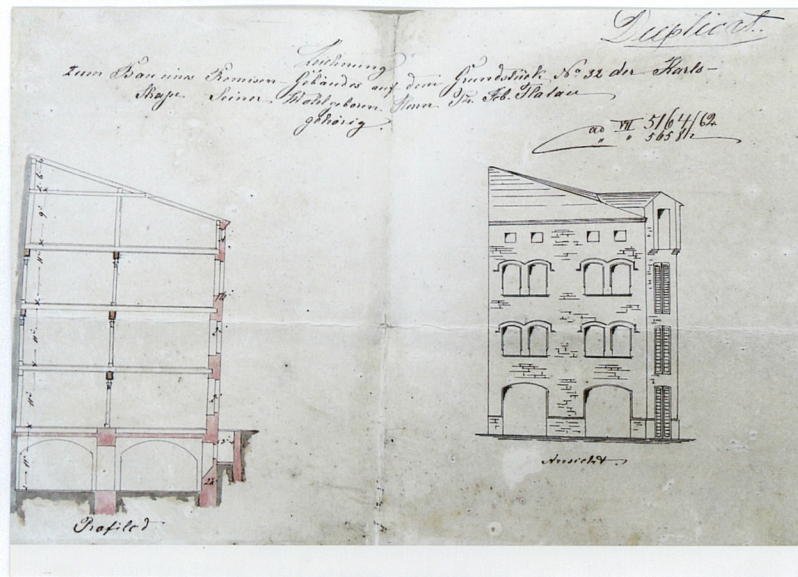 Duplicat.
Zeichnung
zum Bau eines Remisen-Gebäudes auf dem Grundstück No 32 der Karls-
Straße Seiner Wohlgeboren Herrn
gehörig.
ad VII 5164/62
" "
Ansicht.
Profil